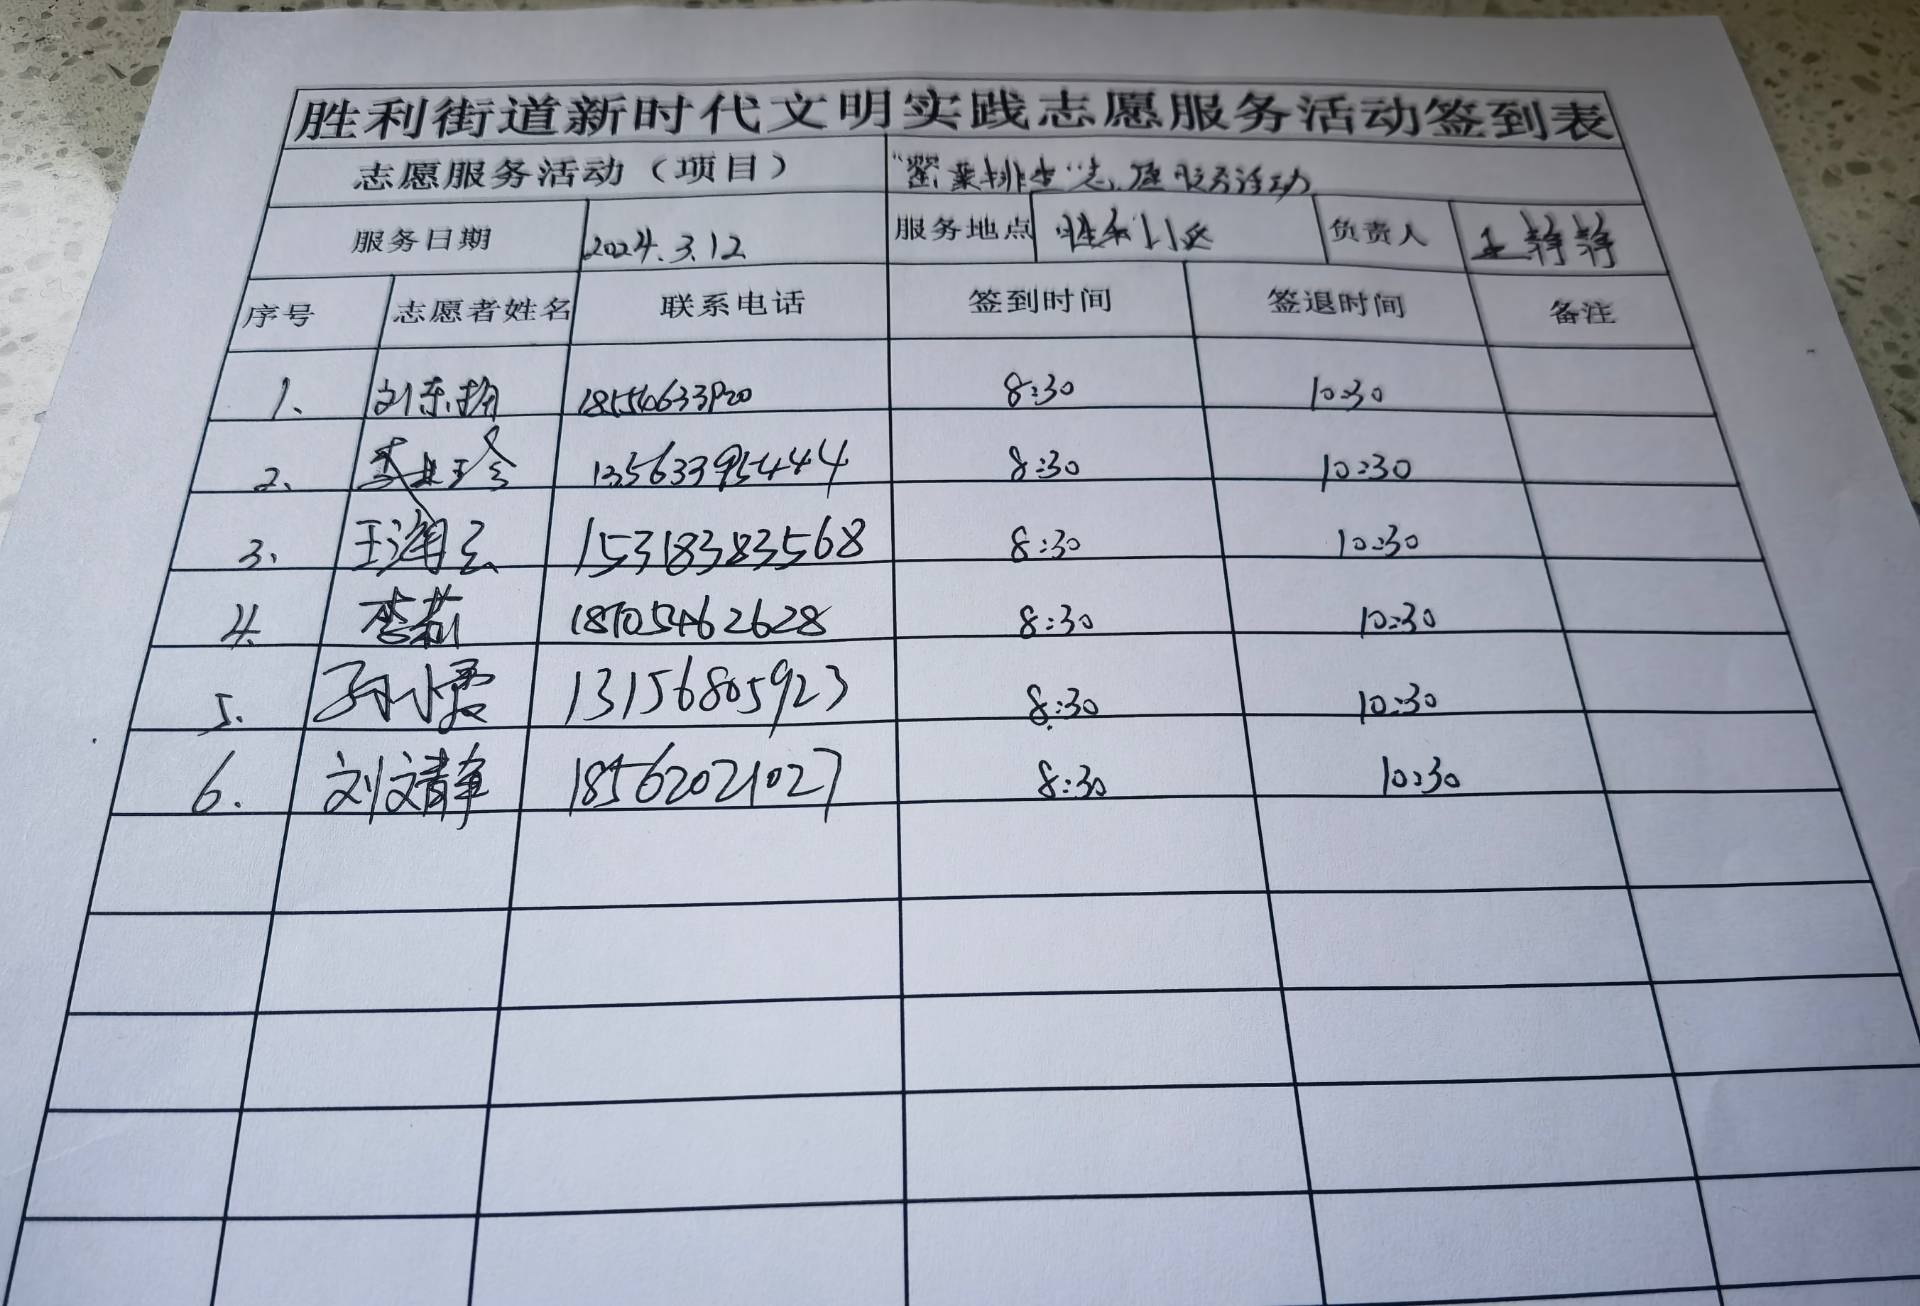 胜利街道新时代文明实践志愿服务活动签到表
志愿服务活动（项目） 志愿服务活动
服务日期 2024.3.12 服务地点 胜利小区 负责人 王静静
序号 志愿者姓名 联系电话 签到时间 签退时间 备注
1. 刘东 8:30 10:30
2. 李 13563395444 8:30 10:30
3. 王海云 15318383568 8:30 10:30
4. 李莉 18705462628 8:30 10:30
5. 孙小霞 13156805923 8:30 10:30
6. 刘文静 18562021027 8:30 10:30